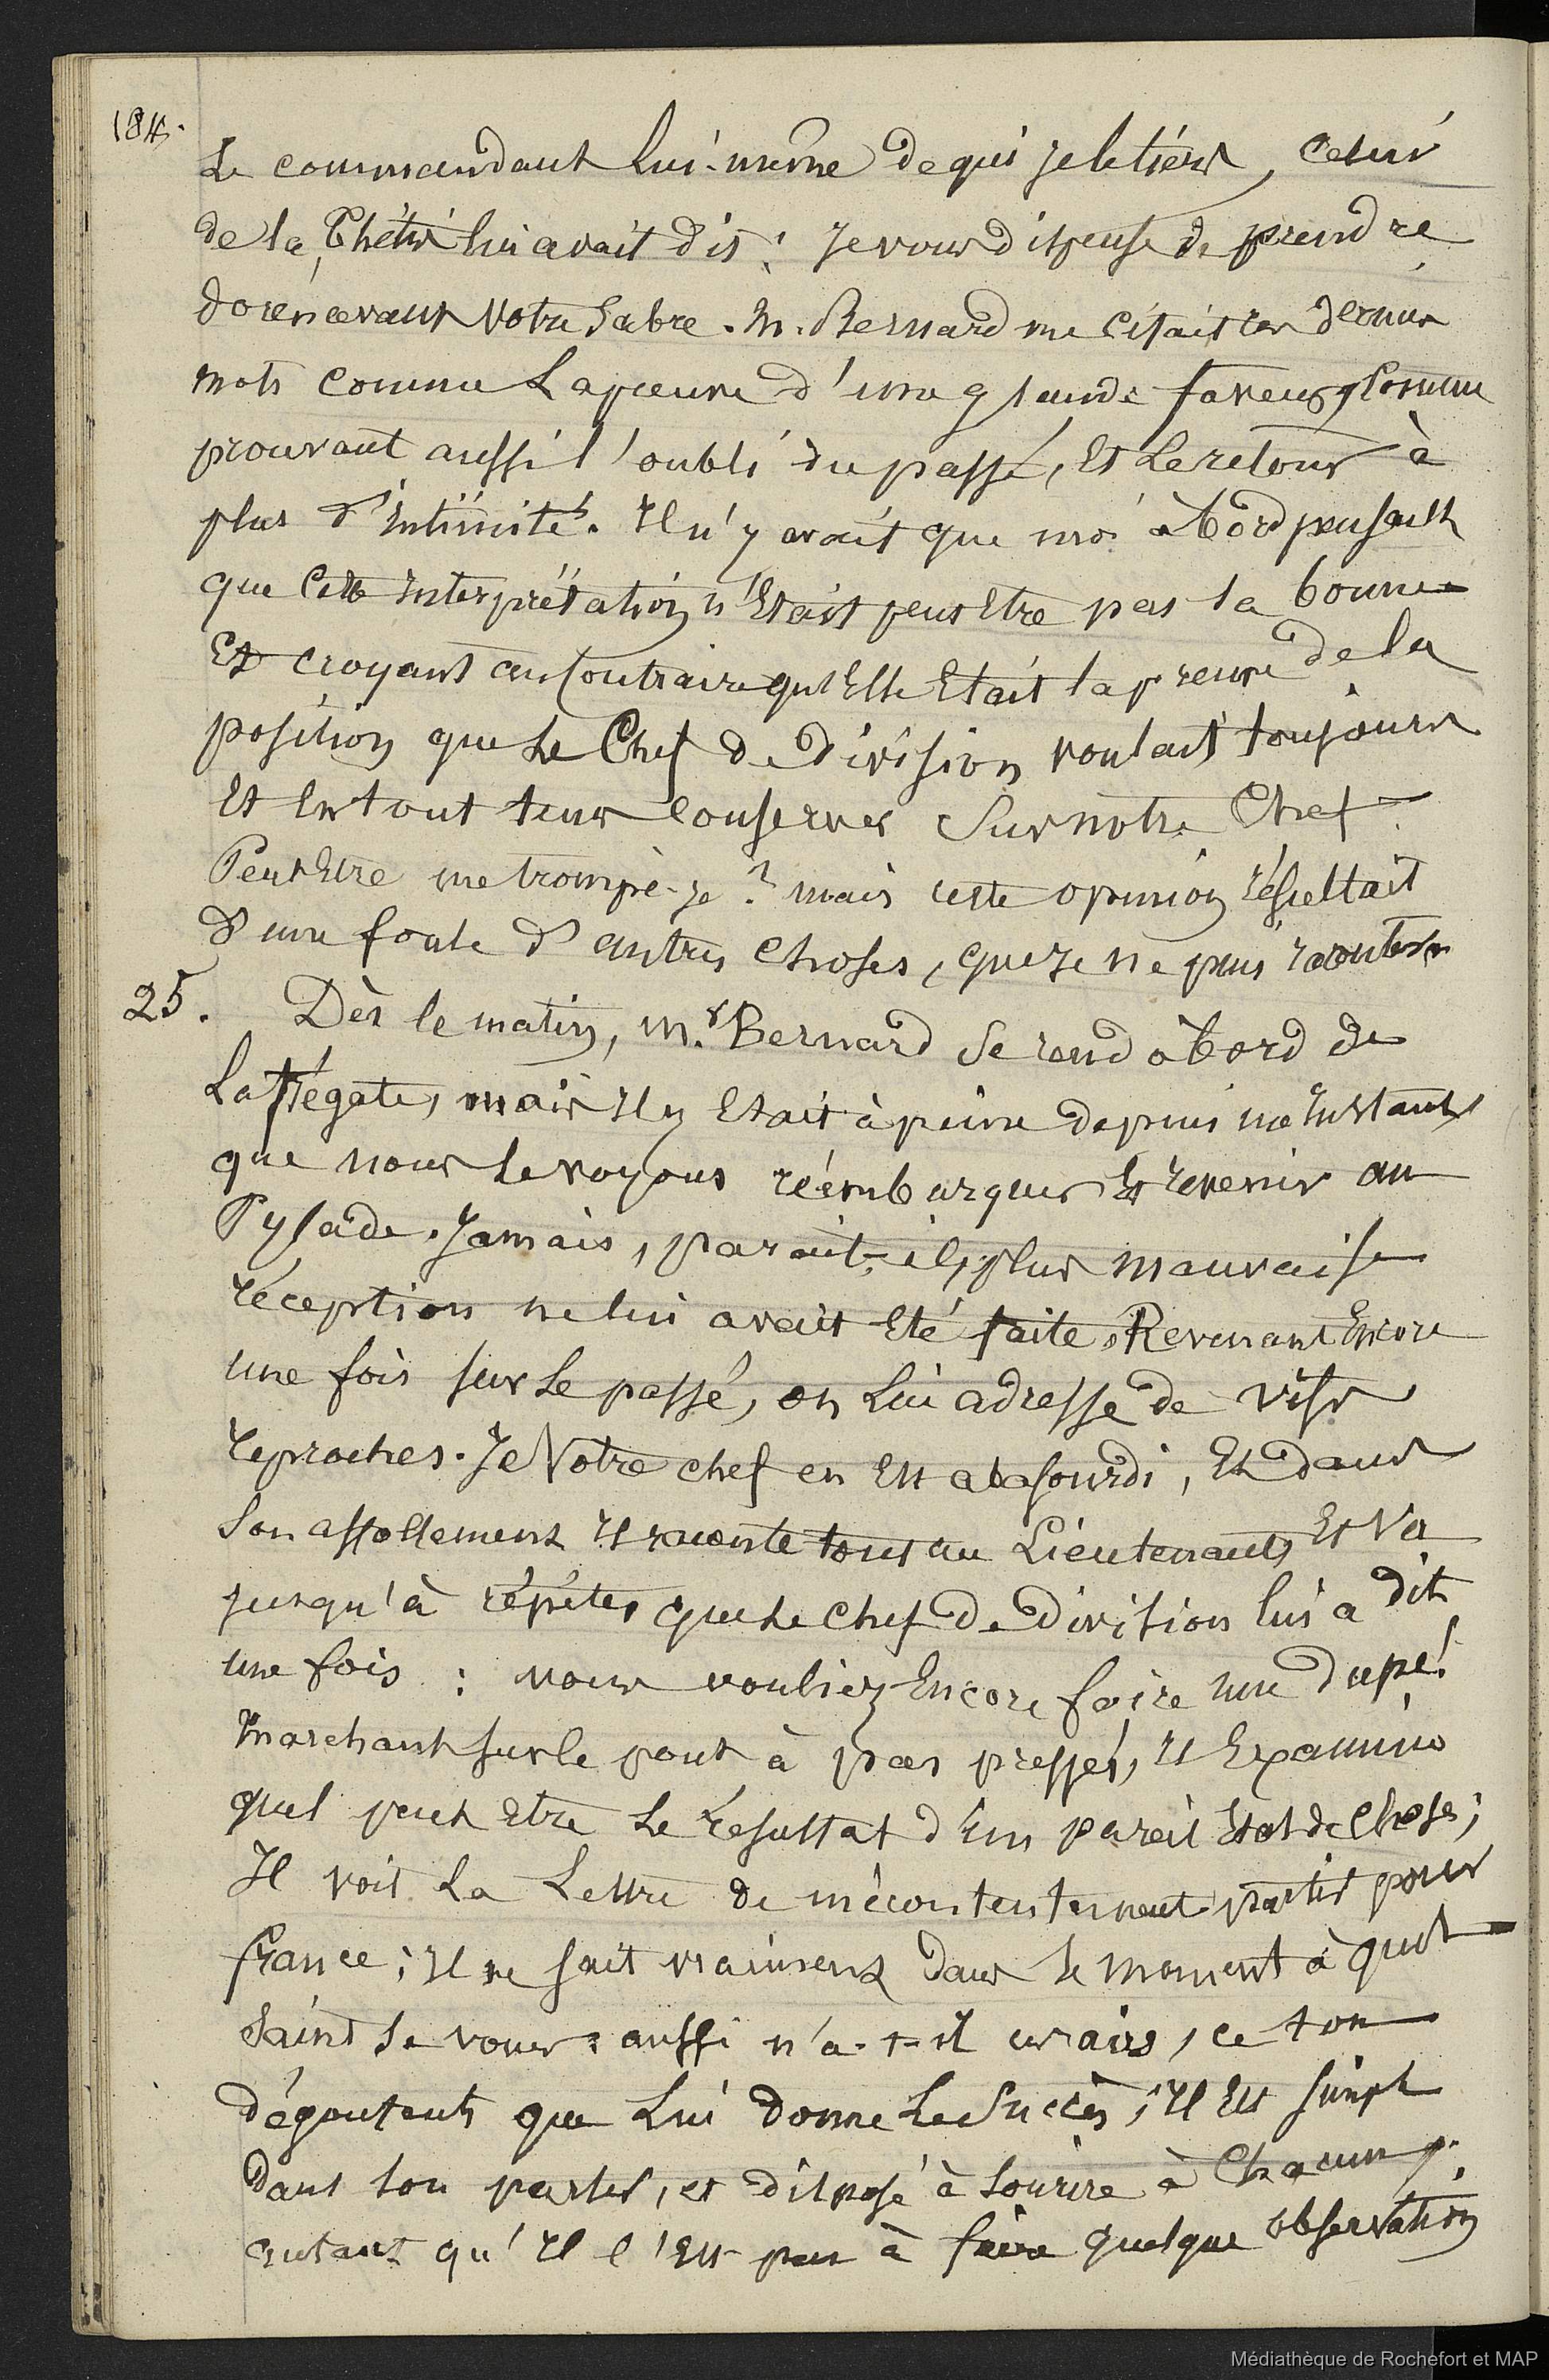 184.
Le commandant Lui-même de qui je le tiens, celui
de la Thétis lui avait dit : Je vous dispense de prendre
dorénavant Votre Sabre. M. Bernard me citait ces derniers
mots comme La preuve d'une grande faveur, comme
prouvant aussi l'oubli du passé, Et Le retour à
plus d'intimité. Il n'y avait que moi à bord pensant
que Cette interprétation n'Etait peut Etre pas la bonne
Et croyant au Contraire qu'Elle Etait la preuve de la
position que Le Chef de division voulait toujours
Et En tout tems conserver Sur notre Chef.
Peut Etre me trompè-je ? mais cette opinion résultait
d'une foule d'autres choses, que je ne puis raconter.
25. Dès le matin, Mr Bernard Se rend à bord de
La frégate, mais Il y Etait à peine depuis un Instant
que nous Le voyons réembarquer Et revenir au
Pylade. Jamais, parait-il, plus mauvaise
réception ne lui avait Eté faite. Revenant Encore
une fois sur Le passé, on Lui adresse de vifs
reproches. Je Votre chef en Est abasourdi, Et dans
Son affollement Il raconte tout au Lieutenant, Et Va
jusqu'à répéter que Le Chef de division lui a dit
une fois : vous vouliez Encore faire une dupe !
Marchant sur le pont à pas pressés, Il Examine
quel peut Etre Le résultat d'un pareil Etat de Choses ;
Il voit La Lettre de mécontentement partir pour
france ; Il ne sait vraiment dans Le moment à quel
Saint Se vouer : aussi n'a-t-il ces airs, ce ton
dégoutant que Lui donne Le Succès ; Il Est simple
dans son parler, et disposé à Sourire à Chacun,
autant qu'Il l'Est peu à faire quelque observation
Médiathèque de Rochefort et MAP